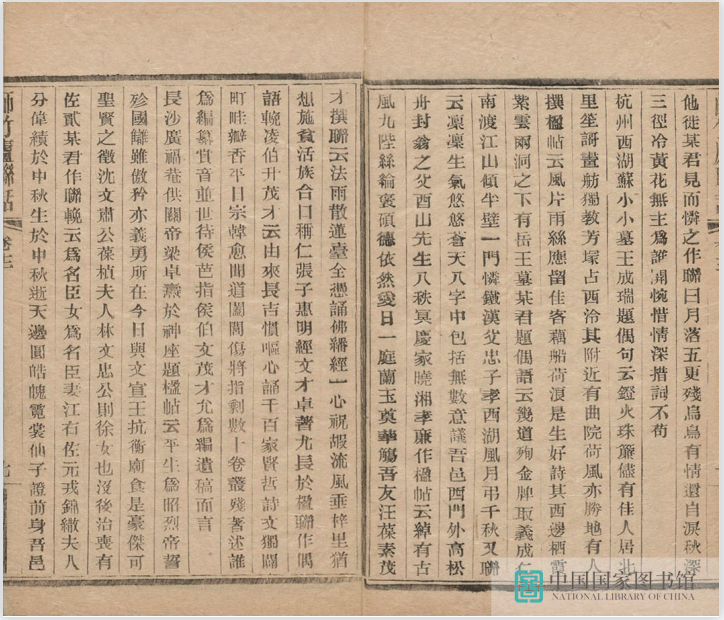 他徙某君見而憐之作聯曰月落五更殘烏烏有情還自淚秋深
三徑冷黃花無主為誰開惋惜情深措詞不苟
杭州西湖蘇小小墓王成瑞題偶句云鐙火珠簾儘有佳人居北
里笙謌畫舫獨教芳塚占西泠其附近有曲院荷風亦勝地有人
撰楹帖云風片雨絲應留佳客藕船荷浪是生好詩其西邊栖霞
紫雲兩洞之下有岳王墓某君題偶語云幾道殉金牌取義成仁
南渡江山傾半壁一門憐鐵漢父忠子孝西湖風月弔千秋又聯
云凜凜生氣悠悠蒼天八字中包括無數意議吾邑西門外高松
舟封翁之父酉山先生八秩冥慶家曉湘孝廉作楹帖云綽有古
風九陛絲綸褒碩德依然愛日一庭蘭玉奠華觴吾友汪葆素茂
才撰聯云法雨散蓮臺全憑誦佛繙經一心祝嘏流風垂梓里猶
想施貧活族合口稱仁張子惠明經文才卓著尤長於楹聯作偶
語輓凌伯升茂才云由來長吉慣嘔心誦千百家賢哲詩文獨闢
町畦瓣香平日宗韓愈聞道闔閭傷將指剩數十卷叢殘著述誰
為編纂賞音並世待侯芭指侯伯文茂才允為編遺稿而言
長沙廣福菴供關帝梁卓燾於神座題楹帖云平生為昭烈帝誓
殄國讎雖傲矜亦義勇所在今日與文宣王抗衡廟食是豪傑可
聖賢之徵沈文肅公葆楨夫人林文忠公則徐女也沒後治喪有
佐貳某君作聯輓云為名臣女為名臣妻江右佐元戎錦繖夫人
分偉績於中秋生於中秋逝天邊圓皓魄霓裳仙子證前身吾邑
師竹廬聯話
卷十二
中国国家图书馆
NATIONAL LIBRARY OF CHINA